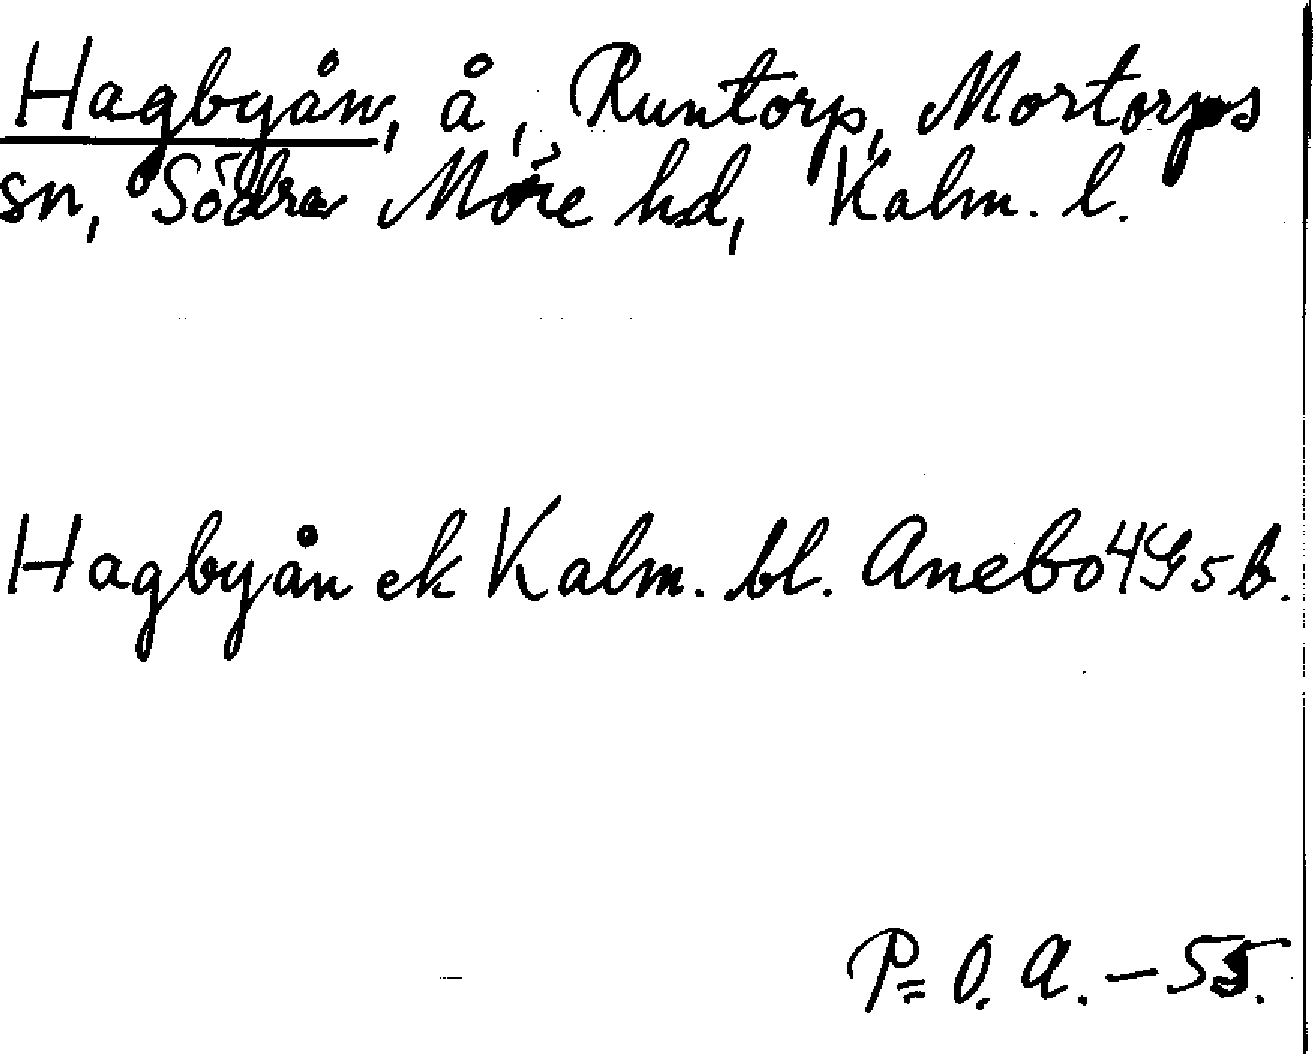 Hagbyån, å, Runtorp, Mortorps
sn, Södra Möre hd, Kalm. l.
Hagbyån ek Kalm. bl. Anebo 4G5b.
P=O.A.-55.